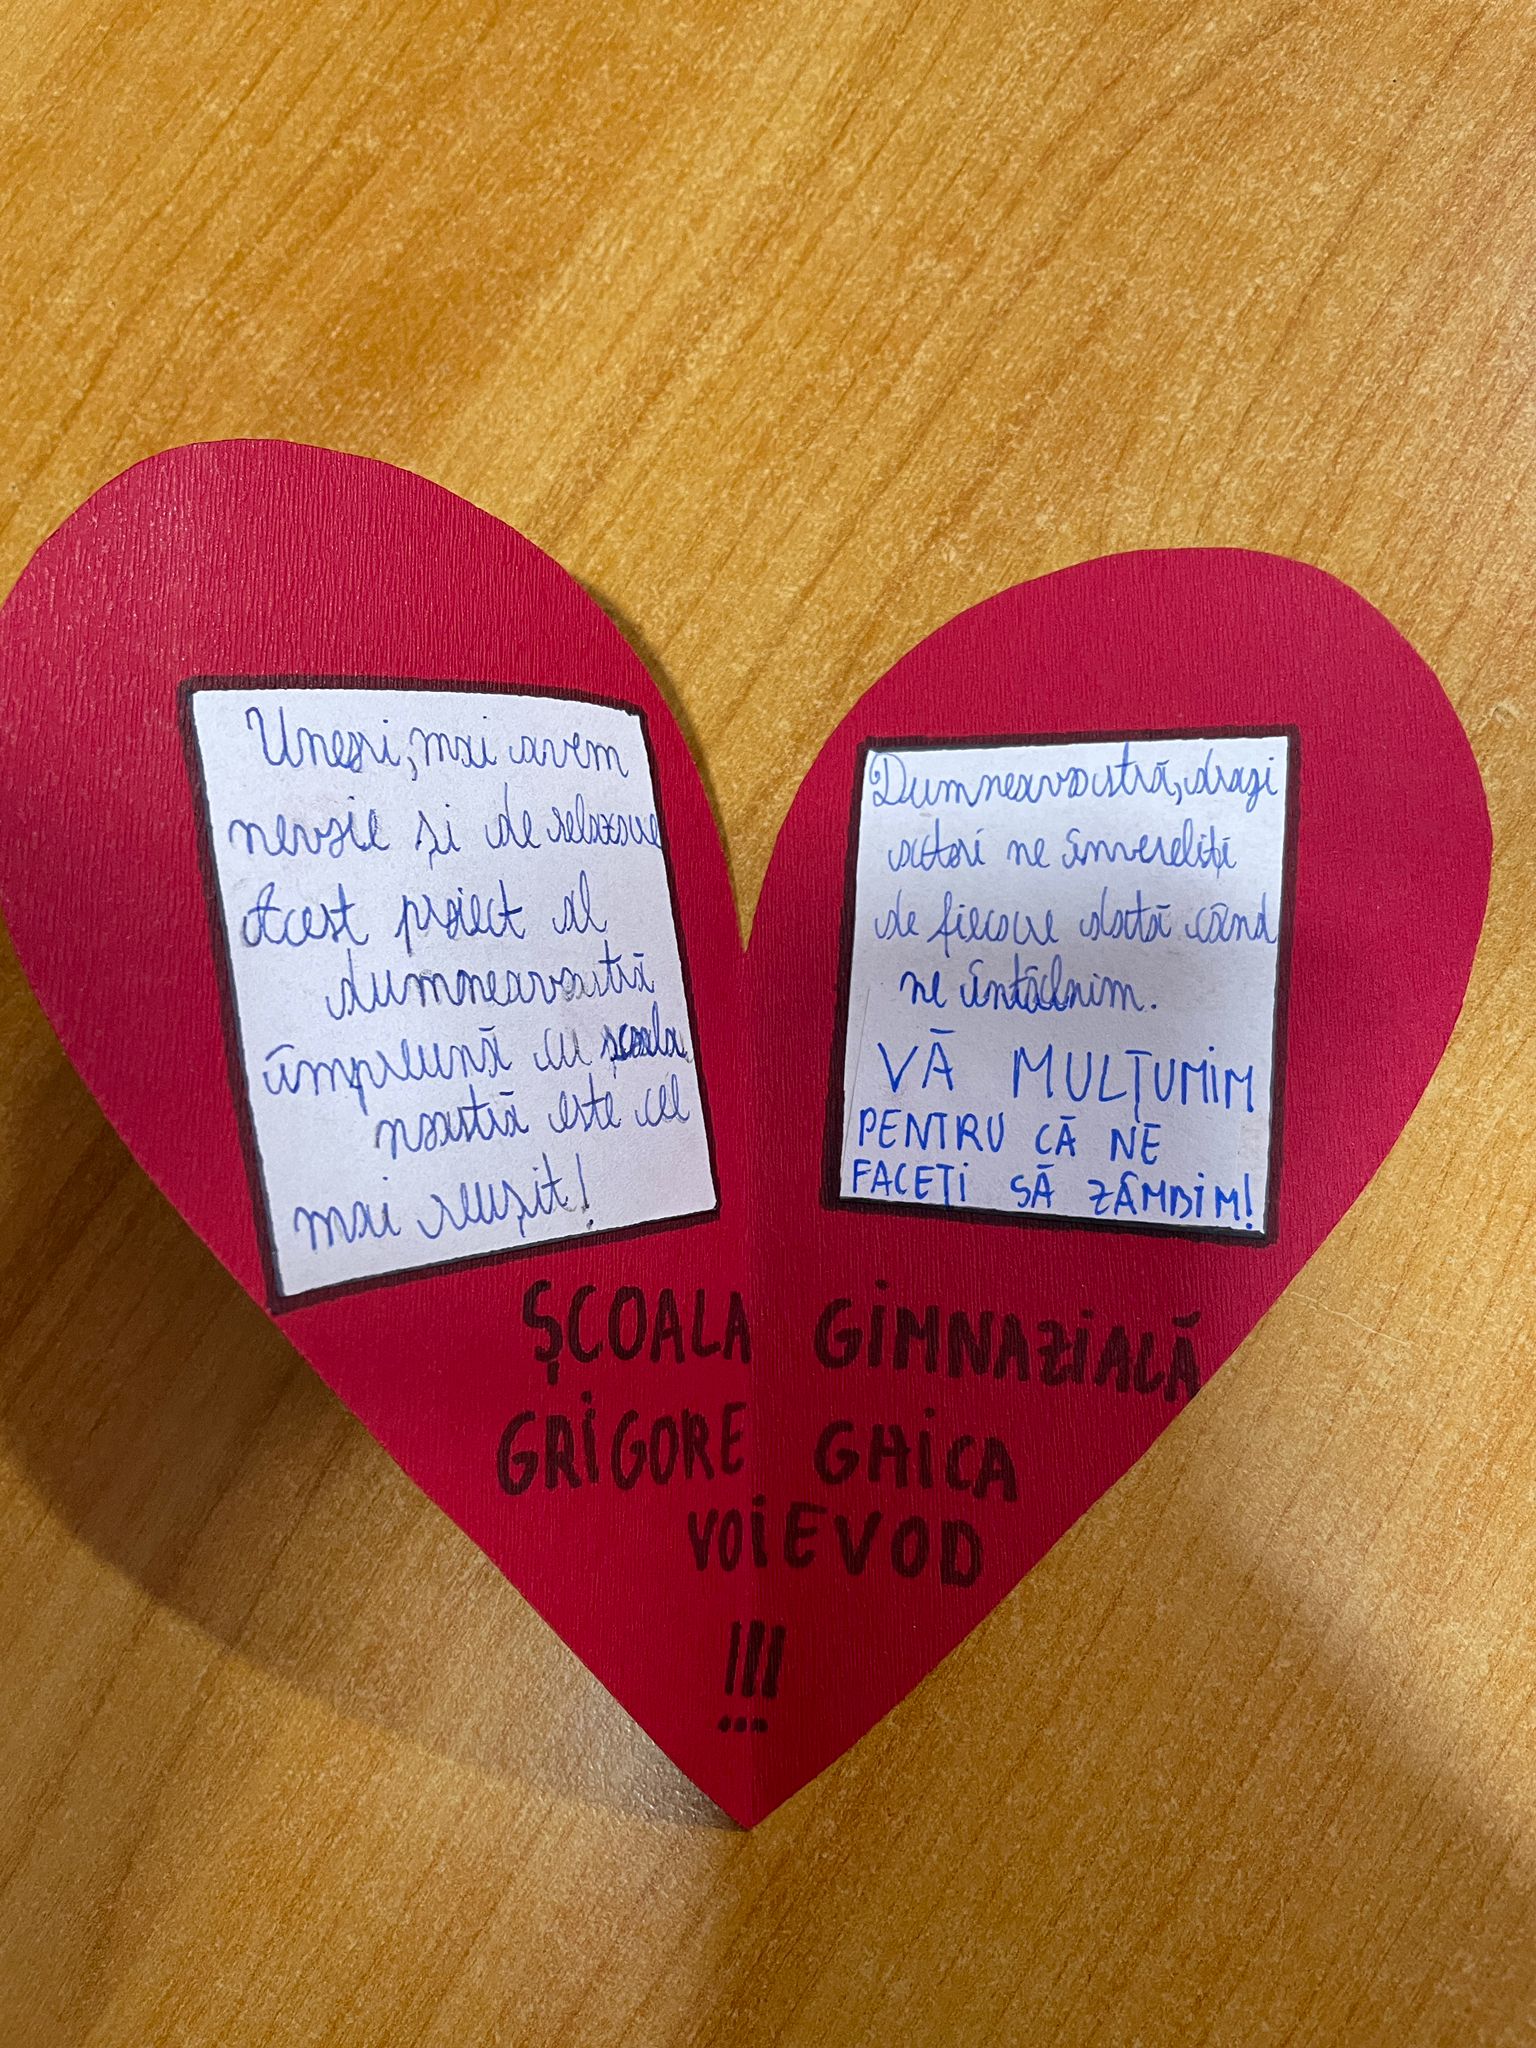 Uneori, mai avem
nevoie și de relaxare
Acest proiect al
dumneavoastră
împreună cu școala
noastră este cel
mai reușit!
Dumneavoastră, dragi
actori ne înveseliți
de fiecare dată când
ne întâlnim.
VĂ MULȚUMIM
PENTRU CĂ NE
FACEȚI SĂ ZÂMBIM!
ȘCOALA GIMNAZIALĂ
GRIGORE GHICA
VOIEVOD
!!!